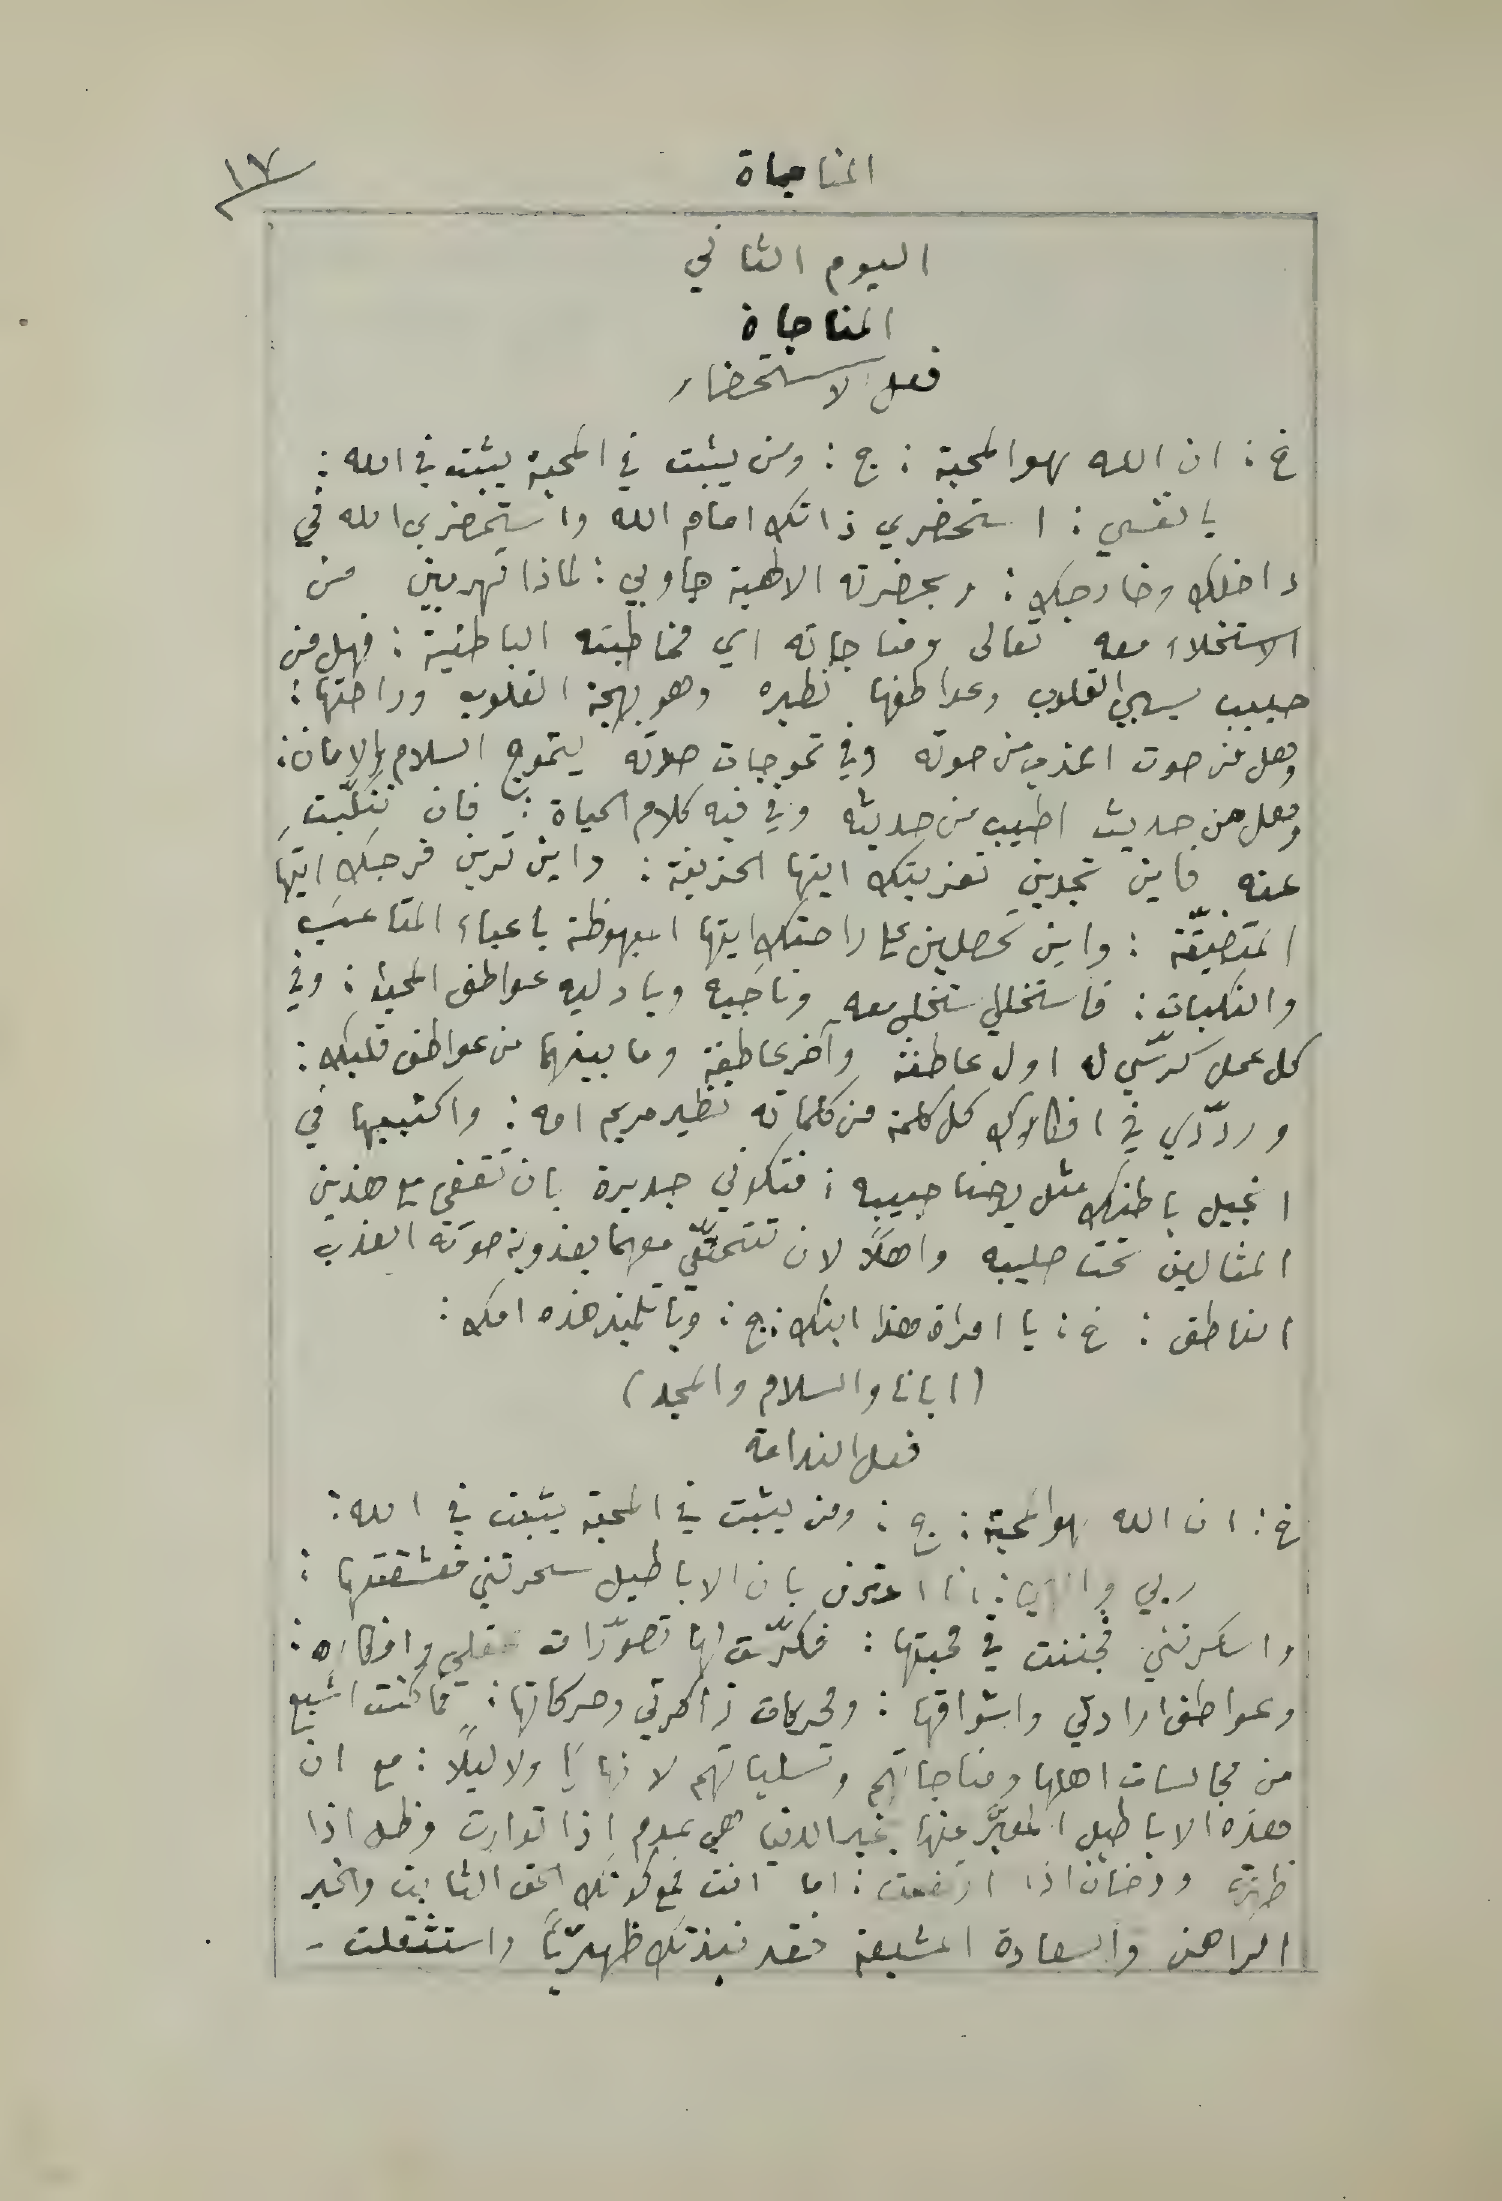 المناجاة
١٧
اليوم الثاني
المناجاة
فعل الاستحضار
خ : ان الله هو المحبة : ج : ومن يثبت في المحبة يثبت في الله :
يا نفسي : استحضري ذاتك امام الله واستحضري الله في
داخلك وخارجك : وبحضرته الالهية جاوبي : لماذا تهربين من
الاستخلاء معه تعالى ومناجاته اي مخاطبته الباطنية : فهل من
حبيب يسبي القلوب وعواطفها نظيره وهو بهجة القلوب وراحتها :
وهل من صوت اعذب من صوته وفي تموجات صوته يتموج السلام والامان :
وهل من حديث اطيب من حديثه وفي فيه كلام الحياة : فان تنكّبتِ
عنه فاين تجدين تعزيتك ايتها الحزينة : واين ترين فرجك ايتها
المتضيّقة : واين تحصلين على راحتك ايتها المبهوظة باعباء المتاعب
والنكبات : فاستخلي معه وناجيه وبادليه عواطف المحبة : وفي
كل عمل كرّسي له اول عاطفة وآخر عاطفة وما بينهما من عواطف قلبك :
وردّدي في افكارك كل كلمة من كلماته نظير مريم امه : واكتبيها في
انجيل باطنك مثل يوحنا حبيبه : فتكوني جديرة بان تقفي مع هذين
المثالين تحت صليبه واهلاً لان تتمتّعي معهما بعذوبة صوته العذب
الناطق : خ : يا امراة هذا ابنك : ج : ويا تلميذ هذه امك :
(ابانا والسلام والمجد)
فعل الندامة
خ : ان الله هو المحبة : ج : ومن يثبت في المحبة يثبت في الله :
ربي والهي : انا اعترف بان الاباطيل سحرتني فعشقتها :
واسكرتني فجننت في محبتها : فكرّست لها تصوّرات عقلي وافكاره :
وعواطف ارادتي واشواقها : ومحركات ذاكرتي وحركاتها : فما كنت اشبع
من مجالسات اهلها ومناجاتهم وتسلياتهم لا نهارًا ولا ليلًا : مع ان
هذه الاباطيل المعبَّر عنها بخير الدنيا هي عدم اذا توارت وظل اذا
ظهرت ودخان اذا ارتفعت : اما انت فمع كونك الحق الثابت والخير
الراهن والسعادة المشبعة فقد نبذتك ظهريًّا واستثقلت -